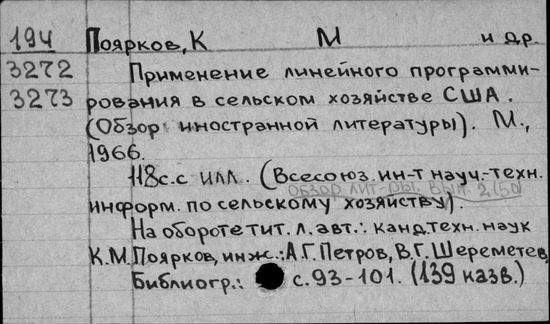 194 Поярков, К М и др.
3272 Применение линейного программи-
3273 рования в сельском хозяйстве США.
(Обзор иностранной литературы). М.,
1966.
118с. с илл. (Всесоюз. ин-т науч.-техн.
Обзор лит-ры. Вып. 2(50)
информ. по сельскому хозяйству).
На обороте тит. л. авт.: канд. техн. наук
К.М. Поярков, инж.: А.Г. Петров, В.Г. Шереметев.
Библиогр.: с. 93-101. (139 назв.)